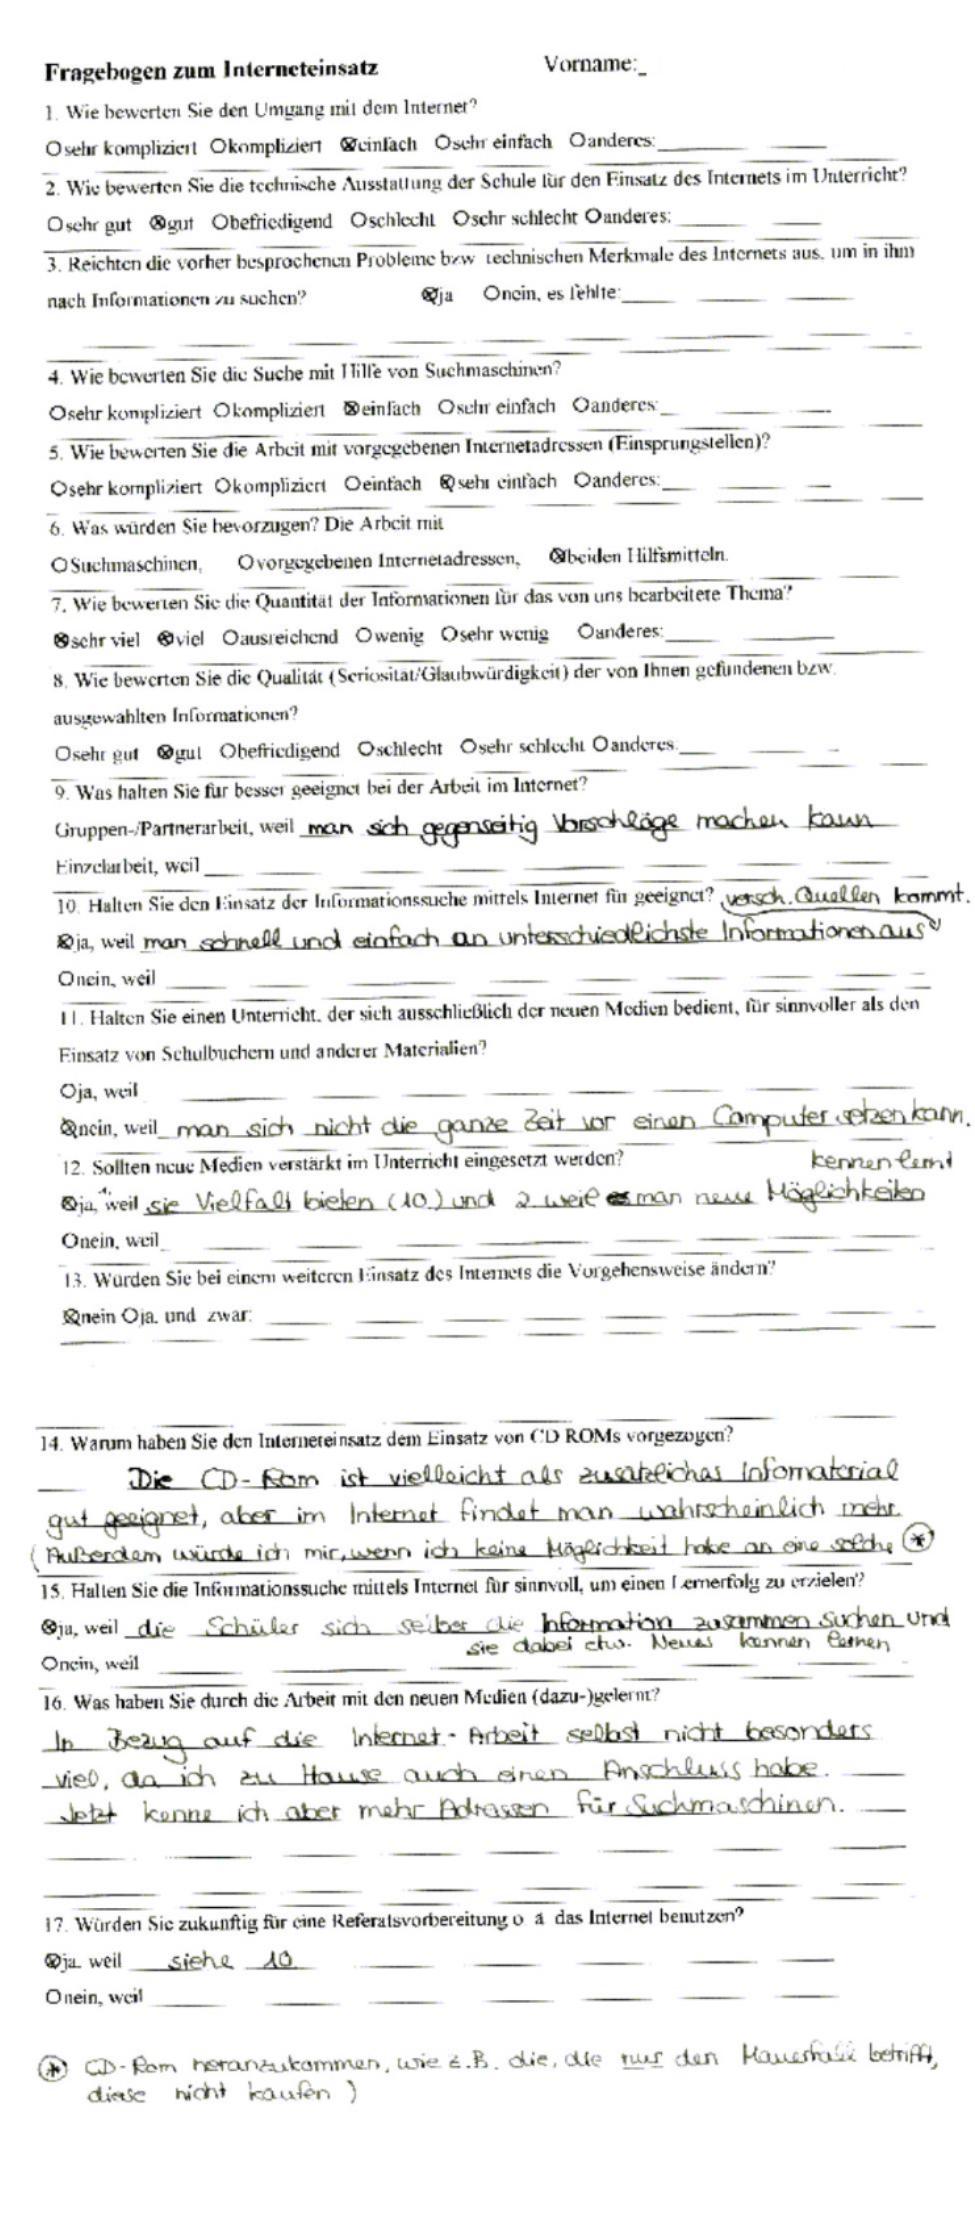 Fragebogen zum Interneteinsatz Vorname:_
1. Wie bewerten Sie den Umgang mit dem Internet?
Osehr kompliziert Okompliziert ⊗einfach Osehr einfach Oanderes:
2. Wie bewerten Sie die technische Ausstattung der Schule für den Einsatz des Internets im Unterricht?
Osehr gut ⊗gut Obefriedigend Oschlecht Osehr schlecht Oanderes:
3. Reichten die vorher besprochenen Probleme bzw technischen Merkmale des Internets aus, um in ihm
nach Informationen zu suchen? ⊗ja Onein, es fehlte:
4. Wie bewerten Sie die Suche mit Hilfe von Suchmaschinen?
Osehr kompliziert Okompliziert ⊗einfach Osehr einfach Oanderes:
5. Wie bewerten Sie die Arbeit mit vorgegebenen Internetadressen (Einsprungstellen)?
Osehr kompliziert Okompliziert Oeinfach ⊗sehr einfach Oanderes:
6. Was würden Sie bevorzugen? Die Arbeit mit
OSuchmaschinen, Ovorgegebenen Internetadressen, ⊗beiden Hilfsmitteln.
7. Wie bewerten Sie die Quantität der Informationen für das von uns bearbeitete Thema?
⊗sehr viel ⊗viel Oausreichend Owenig Osehr wenig Oanderes:
8. Wie bewerten Sie die Qualität (Seriosität/Glaubwürdigkeit) der von Ihnen gefundenen bzw.
ausgewählten Informationen?
Osehr gut ⊗gut Obefriedigend Oschlecht Osehr schlecht Oanderes:
9. Was halten Sie für besser geeignet bei der Arbeit im Internet?
Gruppen-/Partnerarbeit, weil man sich gegenseitig Vorschläge machen kann
Einzelarbeit, weil
10. Halten Sie den Einsatz der Informationssuche mittels Internet für geeignet? versch. Quellen kommt.
⊗ja, weil man schnell und einfach an unterschiedlichste Informationen aus
Onein, weil
11. Halten Sie einen Unterricht, der sich ausschließlich der neuen Medien bedient, für sinnvoller als den
Einsatz von Schulbüchern und anderer Materialien?
Oja, weil
⊗nein, weil man sich nicht die ganze Zeit vor einen Computer setzen kann.
12. Sollten neue Medien verstärkt im Unterricht eingesetzt werden? kennen lernt
⊗ja, 1. weil sie Vielfalt bieten (10.) und 2. weil man neue Möglichkeiten
Onein, weil
13. Würden Sie bei einem weiteren Einsatz des Internets die Vorgehensweise ändern?
⊗nein Oja, und zwar:
14. Warum haben Sie den Interneteinsatz dem Einsatz von CD ROMs vorgezogen?
Die CD-Rom ist vielleicht als zusätzliches Infomaterial
gut geeignet, aber im Internet findet man wahrscheinlich mehr.
(Außerdem würde ich mir, wenn ich keine Möglichkeit habe an eine solche (*)
15. Halten Sie die Informationssuche mittels Internet für sinnvoll, um einen Lernerfolg zu erzielen?
⊗ja, weil die Schüler sich selber die Information zusammen suchen und
sie dabei etw. Neues kennen lernen
Onein, weil
16. Was haben Sie durch die Arbeit mit den neuen Medien (dazu-)gelernt?
In Bezug auf die Internet-Arbeit selbst nicht besonders
viel, da ich zu Hause auch einen Anschluss habe.
Jetzt kenne ich aber mehr Adressen für Suchmaschinen.
17. Würden Sie zukünftig für eine Referatsvorbereitung o ä das Internet benutzen?
⊗ja. weil siehe 10
Onein, weil
(*) CD-Rom heranzukommen, wie z.B. die, die nur den Mauerfall betrifft,
diese nicht kaufen )